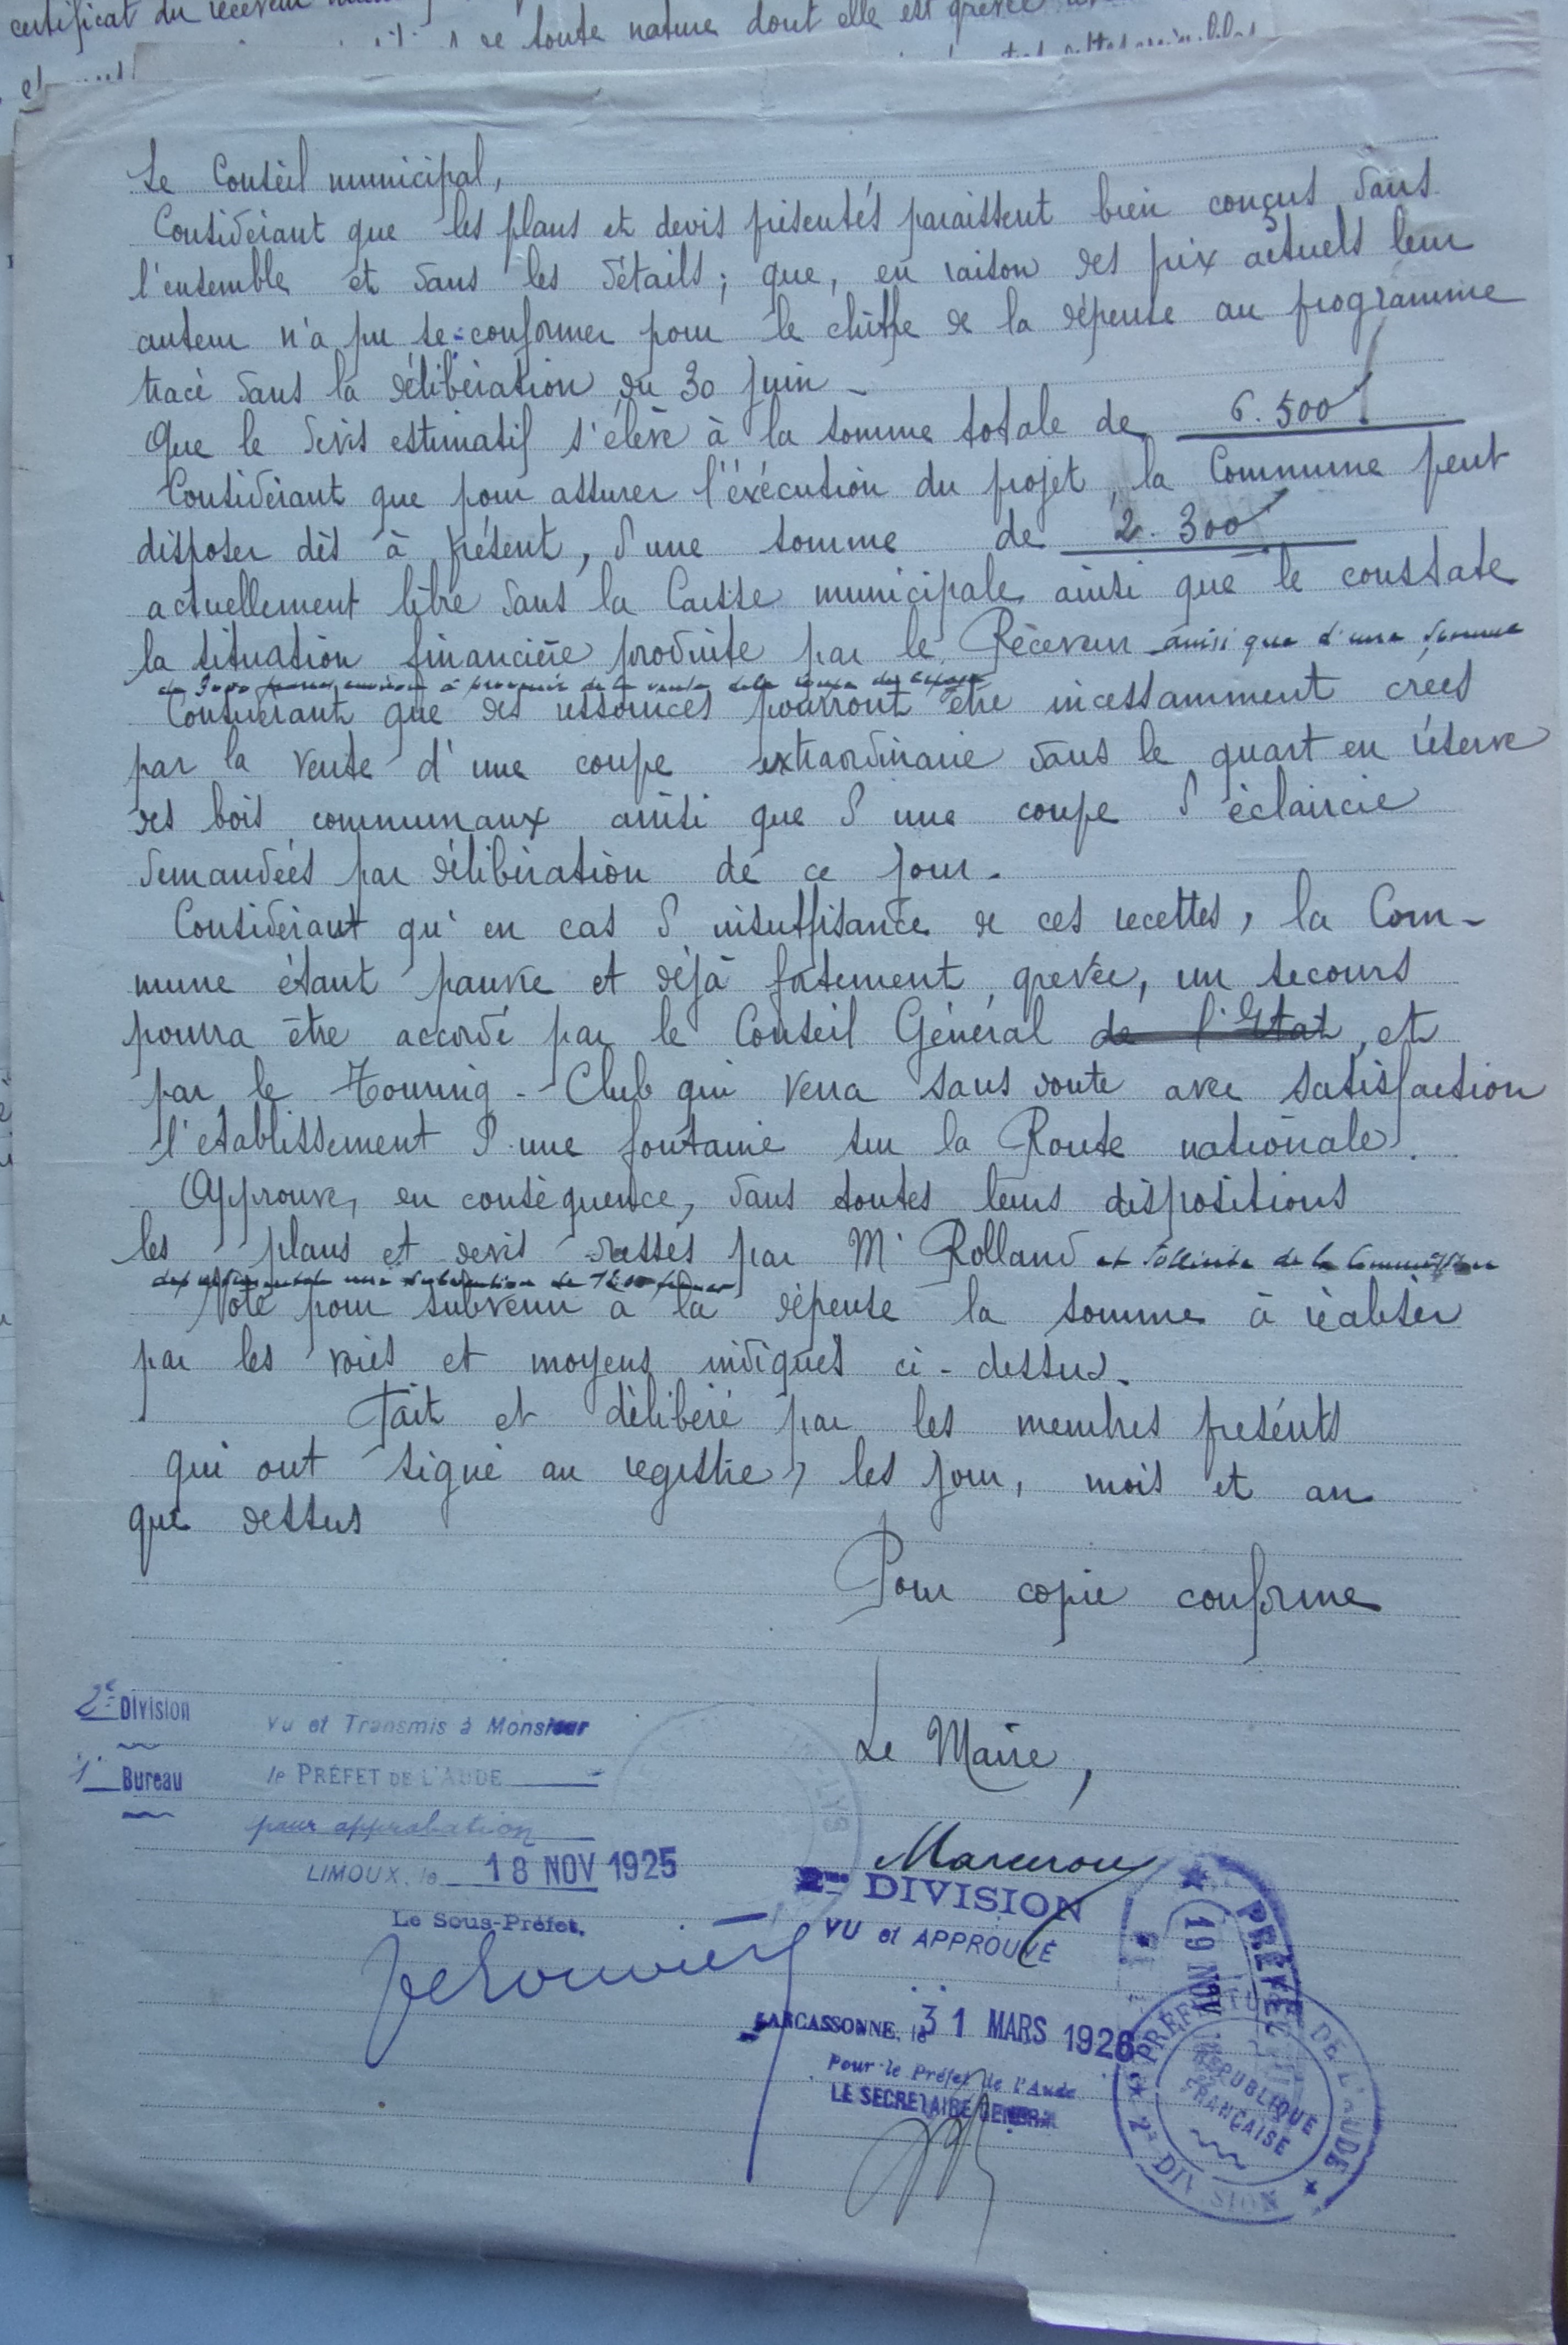 certificat du receveur
de toute nature dont elle est grevée
Le Conseil municipal,
Considérant que les plans et devis présentés paraissent bien conçus dans
l'ensemble et dans les détails; que, en raison des prix actuels leur
auteur n'a pu se conformer pour le chiffre de la dépense au programme
tracé dans la délibération du 30 Juin -
Que le devis estimatif s'élève à la somme totale de 6.500f
Considérant que pour assurer l'éxécution du projet, la Commune peut
disposer dès à présent, d'une somme de 2.300f
actuellement libre dans la Caisse municipale ainsi que le constate
la situation financière produite par le Réceveur ainsi que d'une somme
de 3000 francs environ à provenir de la vente de la coupe
Considérant que des ressources pourront être incessamment créés
par la vente d'une coupe extraordinaire dans le quart en réserve
des bois communaux ainsi que d'une coupe d'éclaircie
demandées par délibération de ce jour.
Considérant qu'en cas d'insuffisance de ces recettes, la Com-
mune étant pauvre et déjà fortement grevée, un secours
pourra être accordé par le Conseil Général de l'Etat, et
par le Touring-Club qui verra sans doute avec satisfaction
l'établissement d'une fontaine sur la Route nationale.
Approuve, en conséquence, dans toutes leurs dispositions
les plans et devis dressés par Mr Rolland et sollicite de la Commission
départementale une subvention de francs
Vote pour subvenir à la dépense la somme à réaliser
par les voies et moyens indiqués ci-dessus.
Fait et délibéré par les membres présents
qui ont signé au registre, les jour, mois et an
que dessus
Pour copie conforme
Le Maire,
2e Division
Vu et Transmis à Monsieur
1r Bureau
le PRÉFET DE L'AUDE
pour approbation
LIMOUX, le 18 NOV 1925
Le Sous-Préfet,
2me DIVISION
VU et APPROUVÉ
CARCASSONNE, le 31 MARS 1926
Pour le Préfet de l'Aude
LE SECRETAIRE GENERAL
19 NOV
PRÉFECTURE DE L'AUDE
RÉPUBLIQUE
FRANÇAISE
2e DIVISION